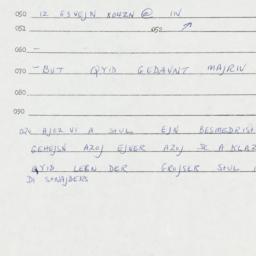 050 IZ GEVEJN KOHZN @ IN
051
050
060 -
070 - BUT QYID GEDAVNT MAJRIV
080
090
AJER VI A SHUL EJN BESMEDRISH
GEHEJSN AZOJ EJNER AZOJ A KLAZ
QYID LEBN DER GROJSER SHUL
DI SHNAJDERS